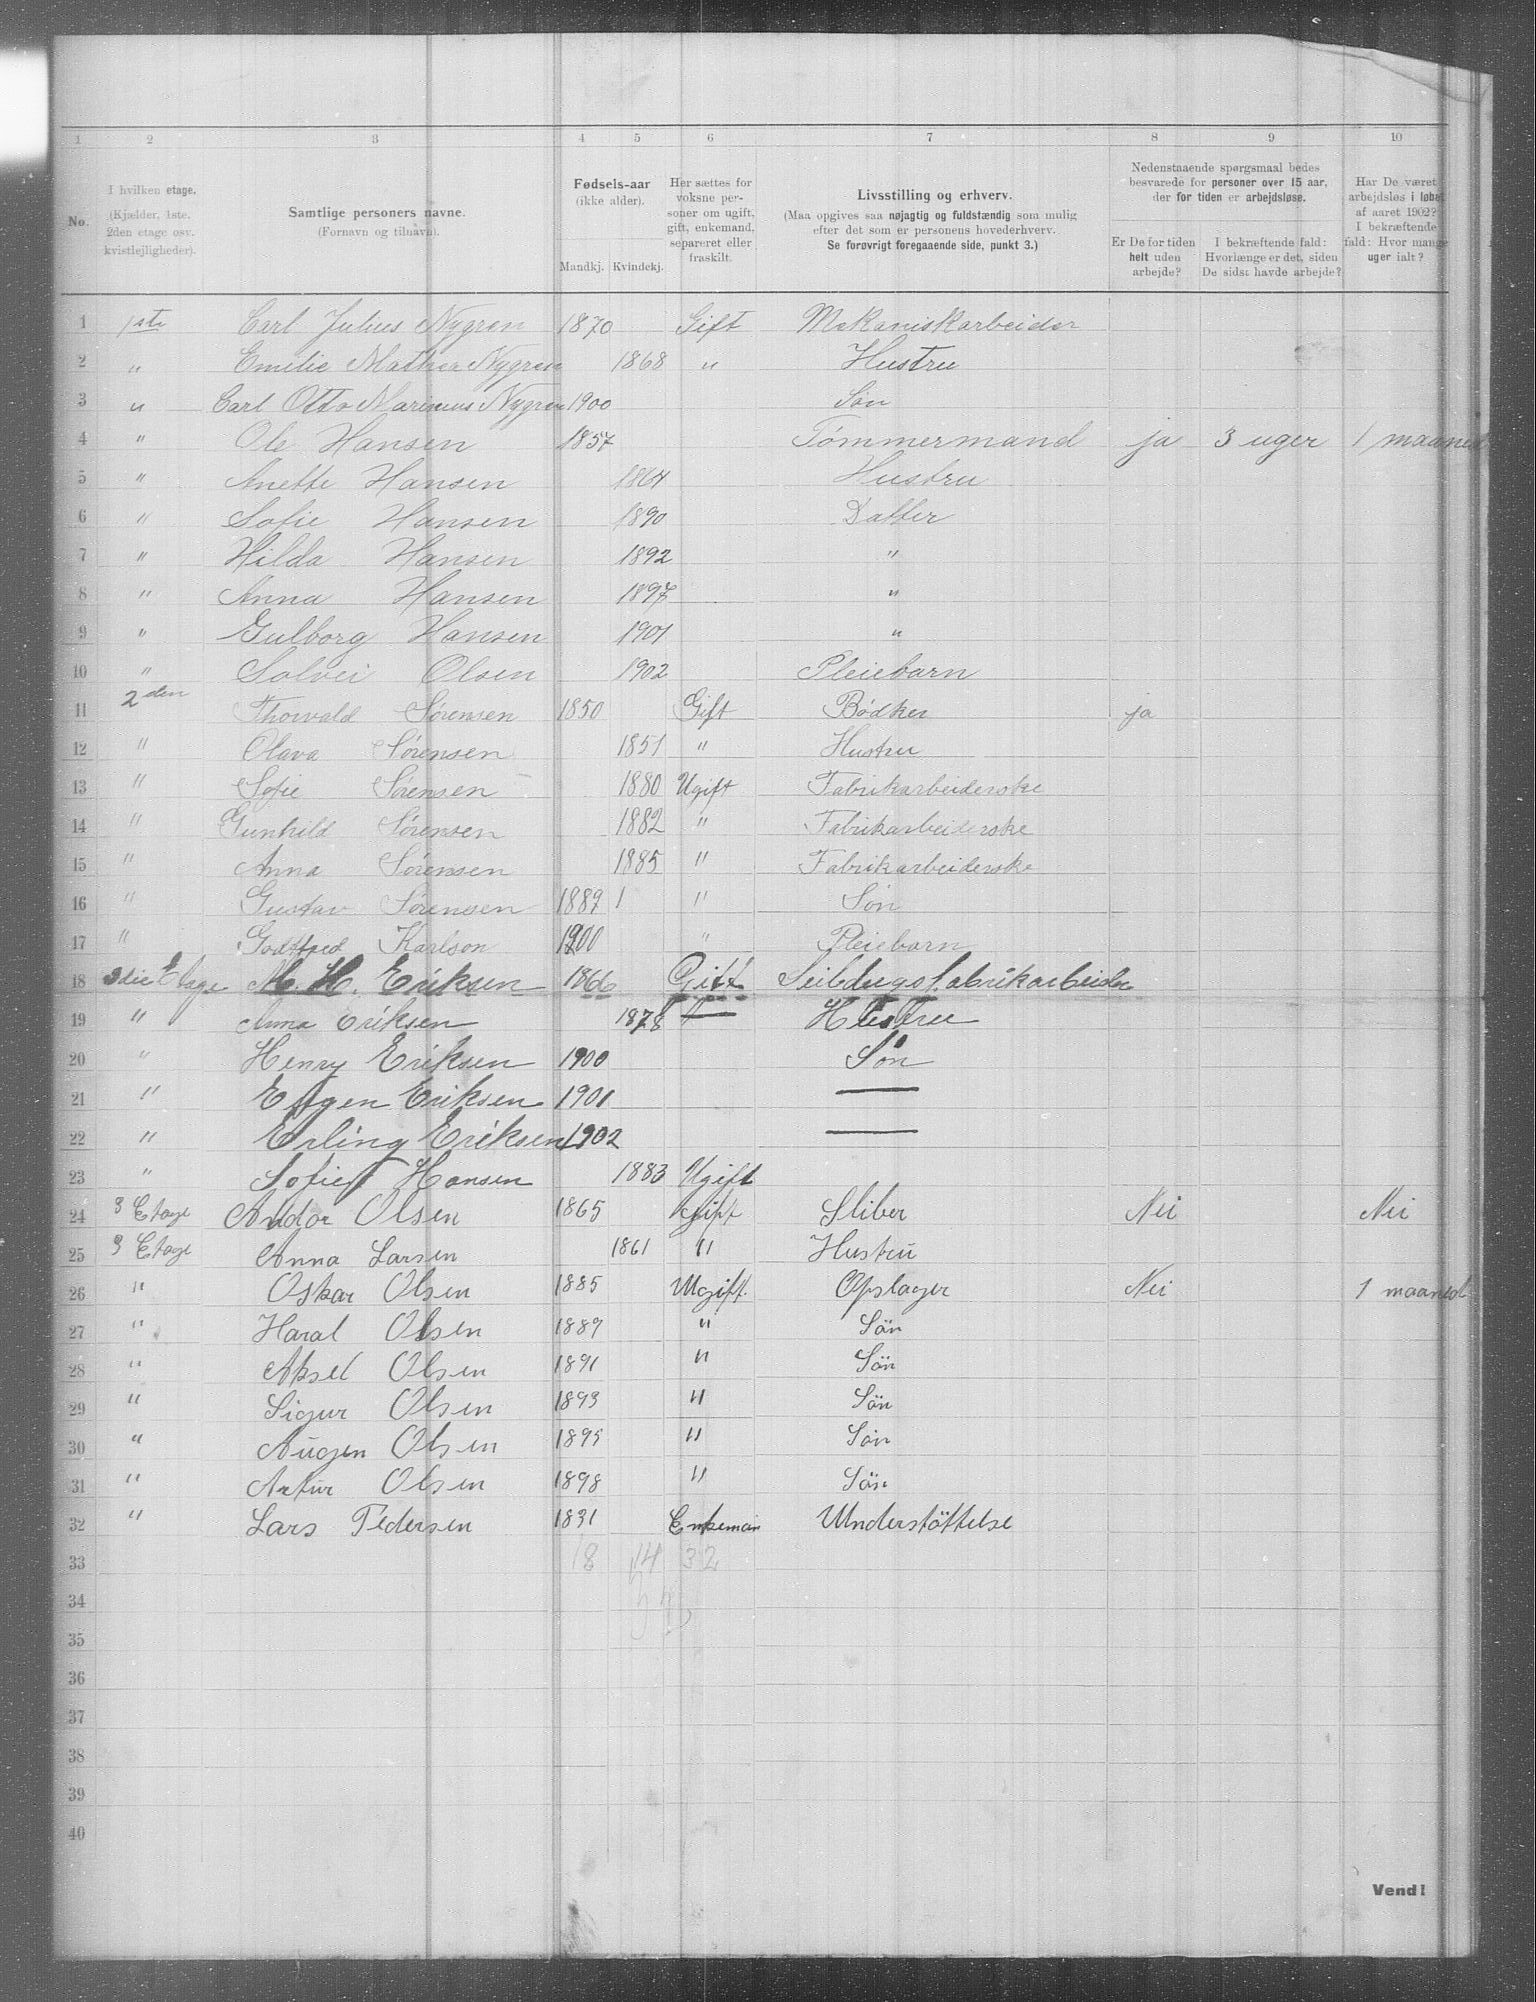 1 2 3 4 5 6 7 8 9 10
No.
I hvilken etage.
(Kjælder, 1ste. 2den etage osv. kvistlejligheder).
Samtlige personers navne.
(Fornavn og tilnavn).
Fødsels-aar
(ikke alder).
Mandkj. Kvindekj.
Her sættes for voksne personer om ugift, gift, enkemand, separeret eller fraskilt.
Livsstilling og erhverv.
(Maa opgives saa nøjagtig og fuldstændig som mulig
efter det som er personens hovederhverv.
Se forøvrigt foregaaende side, punkt 3.)
Nedenstaaende spørgsmaal bedes
besvarede for personer over 15 aar,
der for tiden er arbejdsløse.
Er De for tiden helt uden arbejde?
I bekræftende fald: Hvorlænge er det, siden De sidst havde arbejde?
Har De været arbejdsløs i løbet af aaret 1902? I bekræftende fald: Hvor mange uger ialt?
1 1ste Carl Julius Nygren 1870 Gift Mekaniskarbeider
2 " Emilie Mathea Nygren 1868 " Hustru
3 " Carl Otto Marinius Nygren 1900 Søn
4 " Ole Hansen 1857 Tømmermand ja 3 uger 1 maaned
5 " Anette Hansen 1864 Hustru
6 " Sofie Hansen 1890 Datter
7 " Hilda Hansen 1892 "
8 " Anna Hansen 1897 "
9 " Gulborg Hansen 1901 "
10 " Solvei Olsen 1902 Pleiebarn
11 2den Thorvald Sørensen 1850 Gift Bødker ja
12 " Olava Sørensen 1851 " Hustru
13 " Sofie Sørensen 1880 Ugift Fabrikarbeiderske
14 " Gunhild Sørensen 1882 " Fabrikarbeiderske
15 " Anna Sørensen 1885 " Fabrikarbeiderske
16 " Gustav Sørensen 1889 1 " Søn
17 " Godtfred Karlson 1900 " Pleiebarn
18 3die Etage M. H. Eriksen 1866 Gift Seildugsfabrikarbeider
19 " Anna Eriksen 1878 " Hustru
20 " Henry Eriksen 1900 Søn
21 " Eugen Eriksen 1901 —
22 " Erling Eriksen 1902 —
23 " Sofie Hansen 1883 Ugift
24 3 Etage Andor Olsen 1865 gift Sliber Nei Nei
25 3 Etage Anna Larsen 1861 " Hustru
26 " Oskar Olsen 1885 Ugift Opslager Nei 1 maaned
27 " Haral Olsen 1889 " Sön
28 " Aksel Olsen 1891 " Sön
29 " Sigur Olsen 1893 " Sön
30 " Augen Olsen 1895 " Sön
31 " Artur Olsen 1898 " Sön
32 " Lars Pedersen 1831 Enkeman Understöttelse
33 18 14 32
34
35
36
37
38
39
40
Vend!